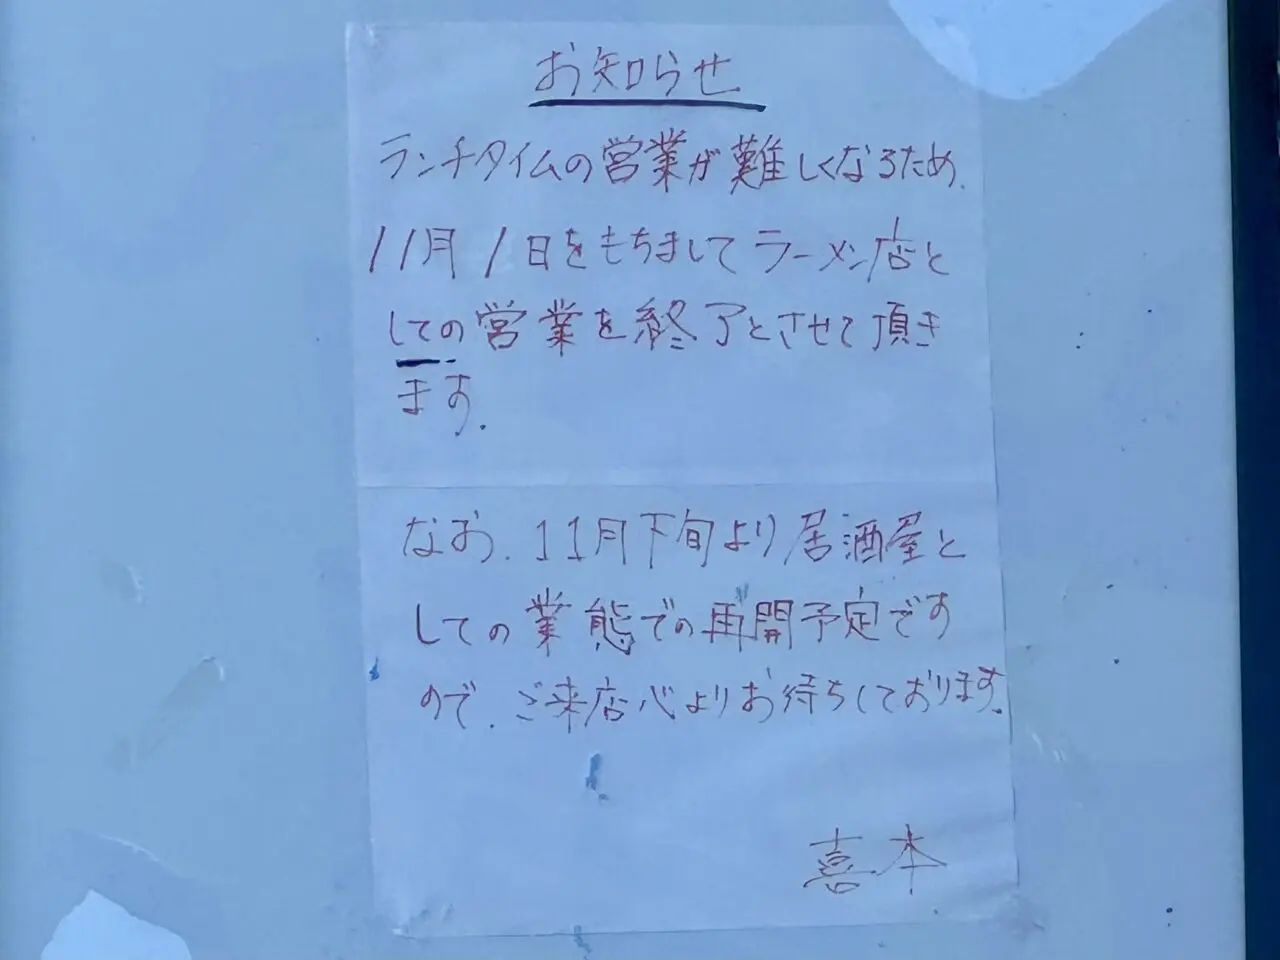 お知らせ
ランチタイムの営業が難しくなるため、
11月1日をもちましてラーメン店と
しての営業を終了とさせて頂き
ます.
なお、11月下旬より居酒屋と
しての業態での再開予定です
ので、ご来店心よりお待ちしております。
喜本